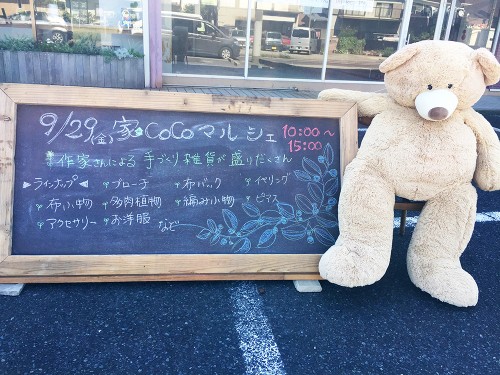 9/29(金) 家 CoCoマルシェ 10:00～15:00
作家さんによる 手づくり雑貨が盛りだくさん
▶ラインナップ◀ ・ブローチ ・布バック ・イヤリング
・布小物 ・多肉植物 ・編み小物 ・ピアス
・アクセサリー ・お洋服 など